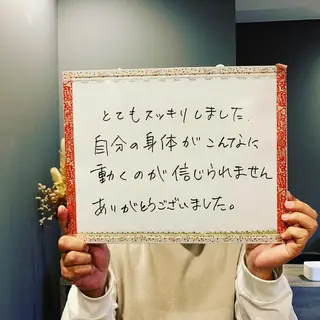 とてもスッキリしました.
自分の身体がこんなに
動くのが信じられません
ありがとうございました。